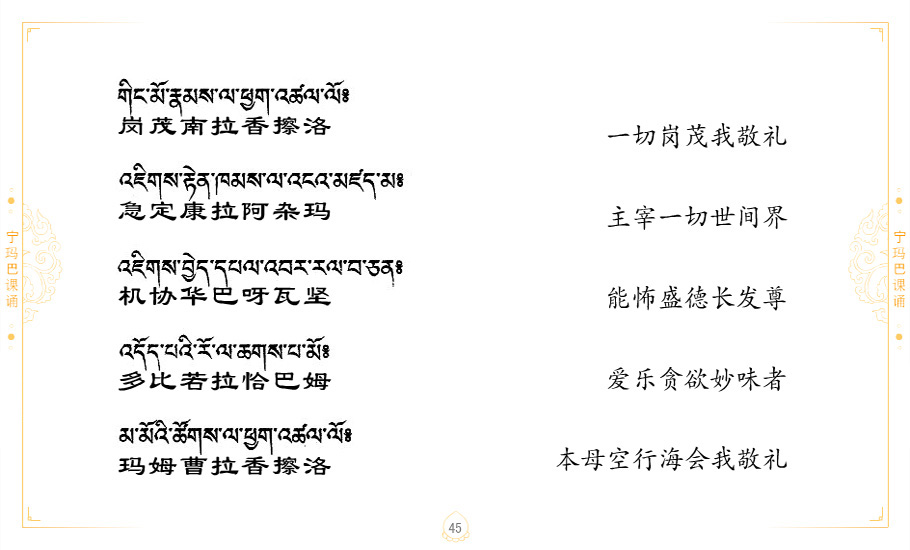 གིང་མོ་རྣམས་ལ་ཕྱག་འཚལ་ལོ༔
岗茂南拉香擦洛
一切岗茂我敬礼
འཇིགས་རྟེན་ཁམས་ལ་འངའ་མཛད་མ༔
急定康拉阿杂玛
主宰一切世间界
འཇིགས་བྱེད་དཔལ་འབར་རལ་བ་ཅན༔
机协华巴呀瓦坚
能怖盛德长发尊
འདོད་པའི་རོ་ལ་ཆགས་པ་མོ༔
多比若拉恰巴姆
爱乐贪欲妙味者
མ་མོའི་ཚོགས་ལ་ཕྱག་འཚལ་ལོ༔
玛姆曹拉香擦洛
本母空行海会我敬礼
宁玛巴课诵
宁玛巴课诵
45